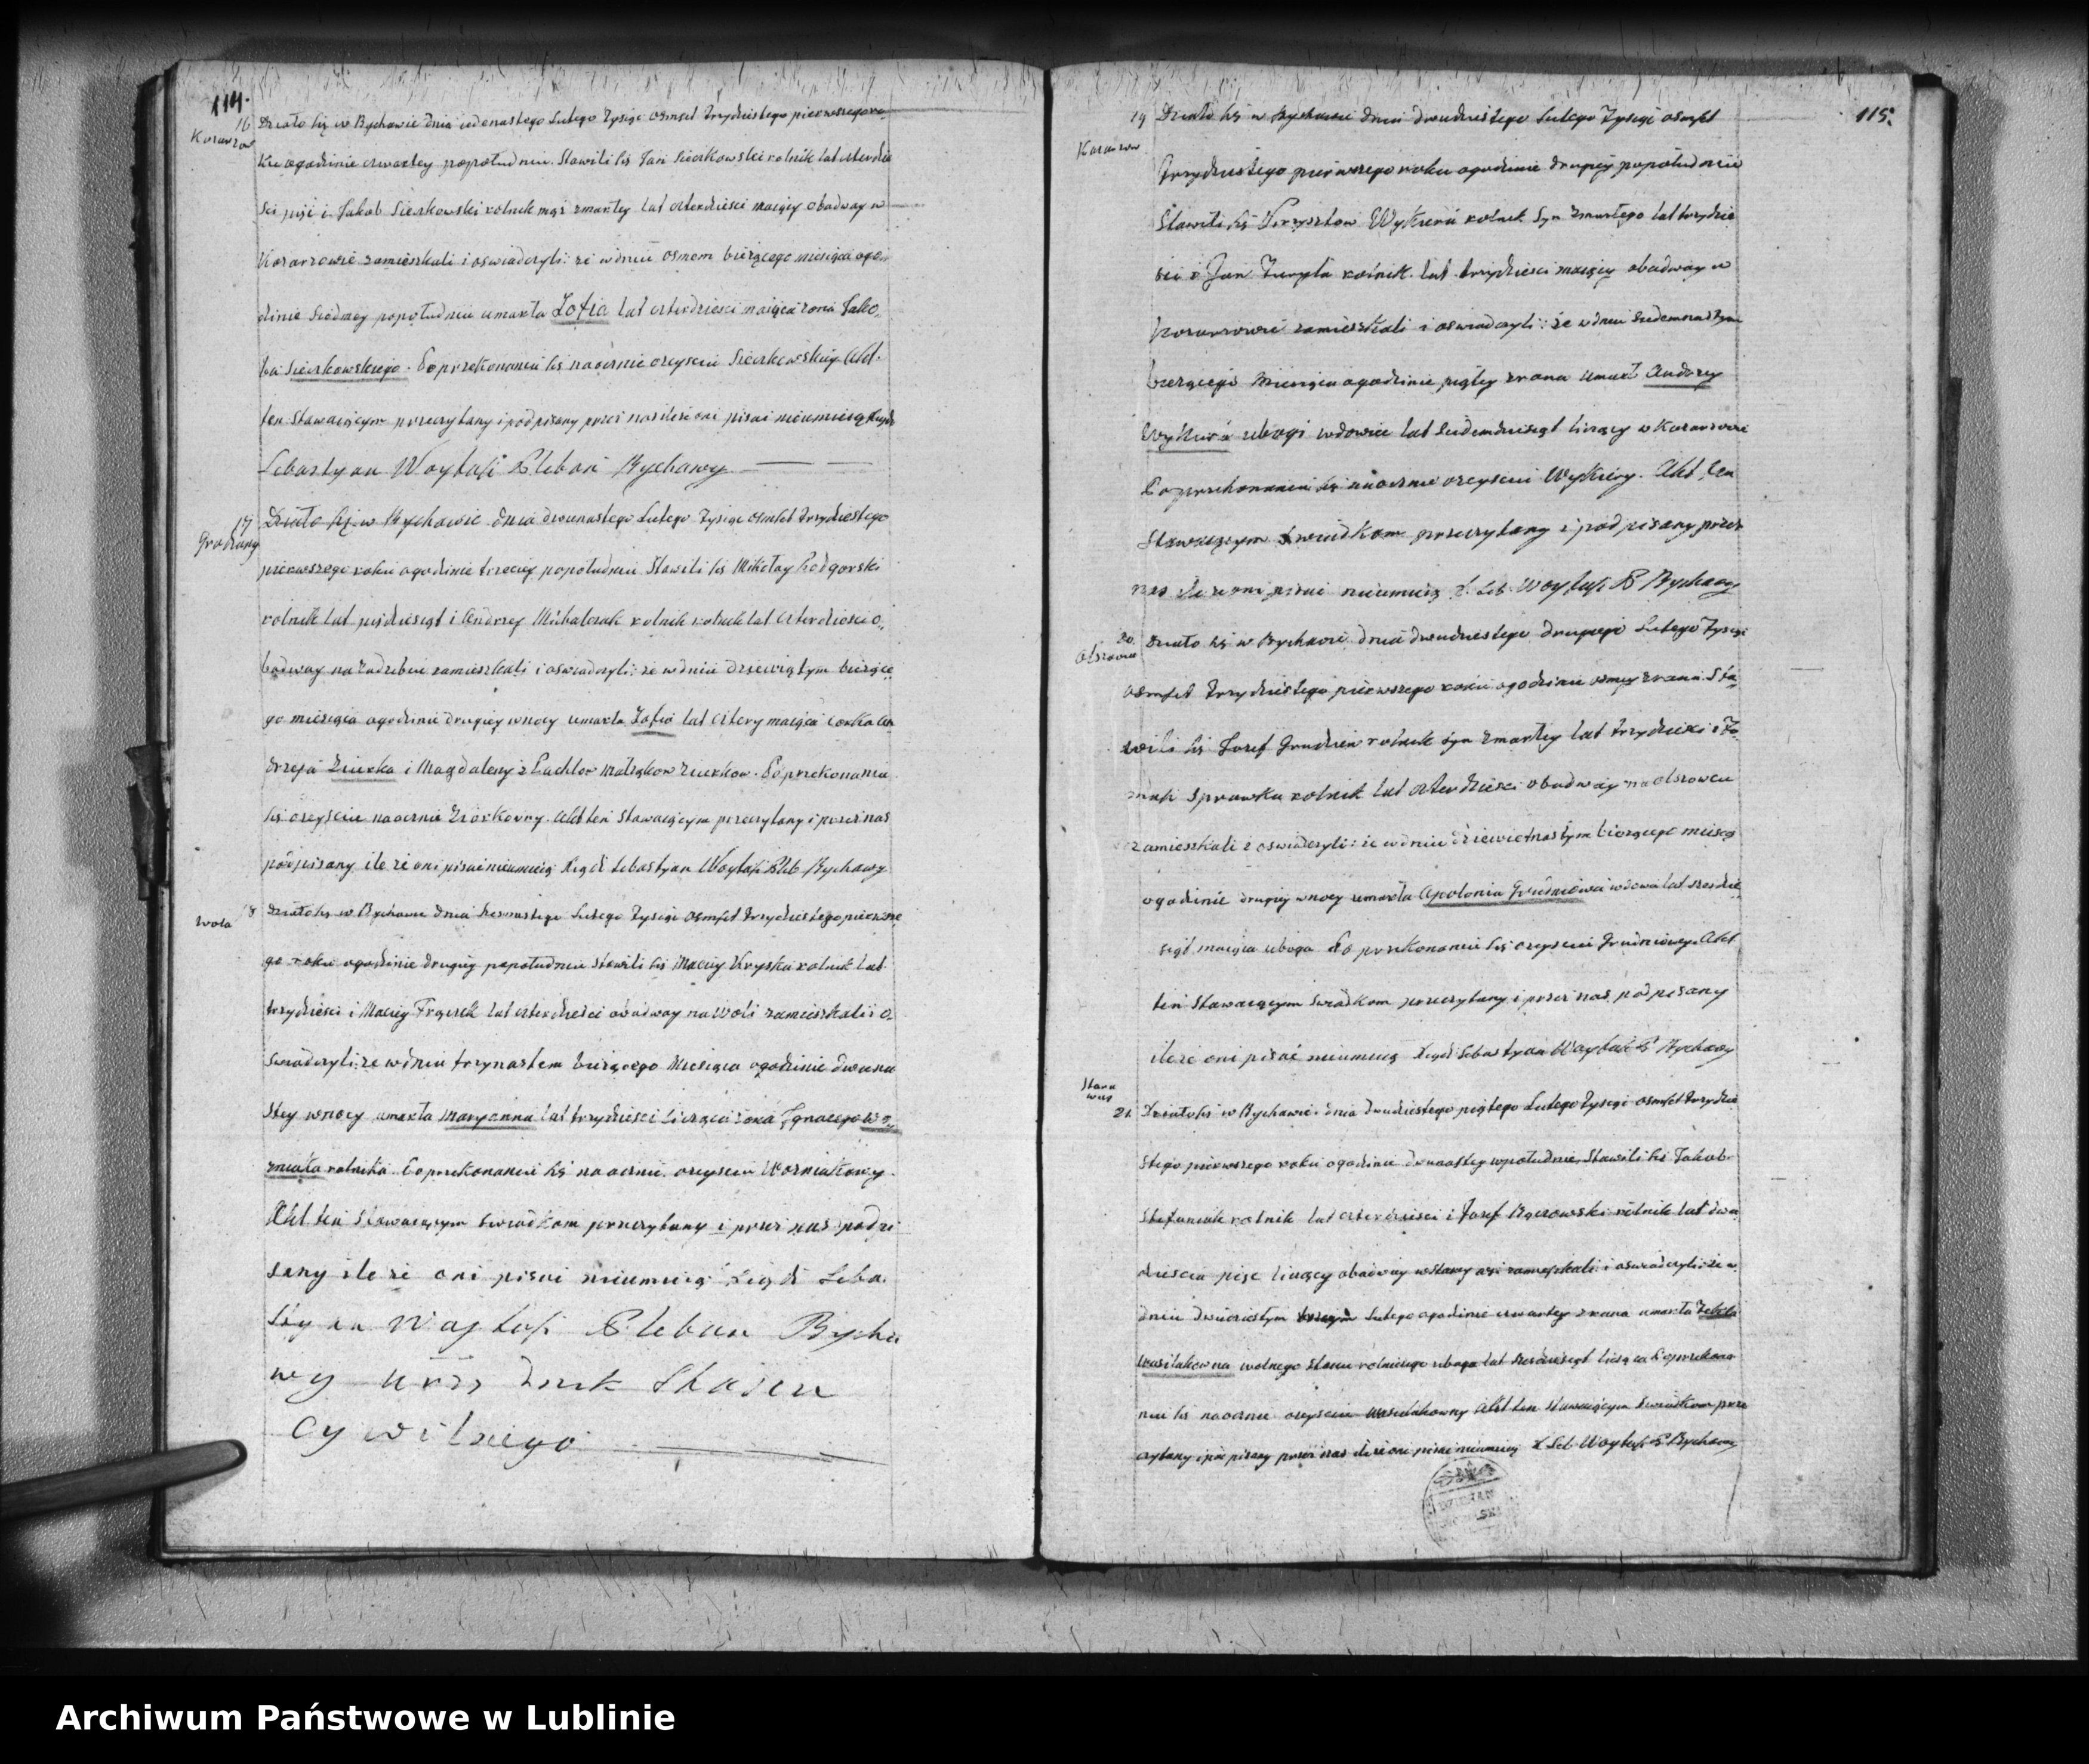 114.
16
Kosarzow
Działo się w Bychawie dnia iedenastego Lutego Tysiąc osmset trzydziestego pierwszego ro,
ku ogodzinie czwartey popołudniu. Stawili się Jan Sierkowski rolnik lat czterdzie
sci pięć i Jakob Sierkowski rolnik mąż zmarłey lat czterdzieści maiący obadway w
Kosarzowie zamieszkali i oswiadczyli: że wdniu osmem bieżącego miesiąca ogo,
dzinie siodmey popołudniu umarła Zofia lat czterdziesci maiąca żona Jako,
ba Sierkowskiego. Poprzekonaniu się naocznie ozeysciu Sierkowskiey Akt
ten Stawaiącym przeczytany i podpisany przez nas ile że oni pisać nieumieią Xiądz
Sebastyan Woytasi Pleban Bychawy
17
Grodzany
Działo się w Bychawie dnia dwunastego Lutego Tysiąc osmset trzydziestego
pierwszego roku ogodzinie trzeciey popołudniu Stawili się Mikołay Podgorski
rolnik lat pięćdziesiąt i Andrzey Michalczuk rolnik rolnik lat czterdzieści o,
badway na Zadębiu zamieszkali i oswiadczyli: że wdniu dziewiątym bieżące,
go miesiąca ogodzinie drugiey wnocy umarła Zofia lat cztery maiąca corka An
drzeja Ziurka i Magdaleny z Pachlow Małżąkow Ziurkow. Poprzekonaniu
się ozeysciu naocznie Ziorkowny. Akt ten Stawaiącym przeczytany i przez nas
podpisany ile że oni pisać nieumieią Xiądz Sebastyan Woytasi Pleb Bychawy
18
Wola
Działo się w Bychawie dnia Lutego Tysiąc osmset trzydziestego pierwsze,
go roku ogodzinie drugiey popołudniu stawili się Maciey Kryska rolnik lat
trzydziesci i Maciey Frączek lat czterdziesci obadway na Woli zamieszkali i o,
swiadczyli: że wdniu trzynastem bieżącego Miesiąca ogodzinie dwuna
stey wnocy umarła Maryanna lat trzydziesci licząca żona Jgnacego Wo,
zniaka rolnika. Poprzekonaniu się naocznie ozeysciu Wozniakowy.
Akt ten Stawaiącym swiadkom przeczytany i przez nas podpi
sany ile że oni pisać nieumieią Xiądz Seba.
sty an Woytasi Pleban Bycha
wy Urzędnik Stanu
Cywilnego
115.
19
Kosarzow
Działo się w Bychawie dnia dwudziestego Lutego Tysiąc osmset
trzydziestego pierwszego roku ogodzinie drugiey popołudniu
Stawili się Krzysztow Wykiera rolnik syn zmarłego lat trzydzie
ści i Jan rolnik lat trzydziesci maiący obadway w
Kosarzowie zamieszkali i oswiadczyli: że wdniu siedemnastym
bieżącego Miesiąca ogodzinie piątey zrana umarł Andrzey
Wykiera ubogi wdowiec lat siedemdziesiąt liczący w Kosarzowie
Poprzekonaniu się naocznie ozeysciu Wykiery. Akt ten
Stawaiącym swiadkom przeczytany i podpisany przez
nas ile że oni pisać nieumieią X. Seb Woytasi P Bychawy
20
Olszowiec
Działo się w Bychawie dnia dwudziestego drugiego Lutego Tysiąc
osmset trzydziestego pierwszego roku ogodzinie osmey zrana Sta,
wili się Jozef Grudzien rolnik syn zmarłey lat trzydziesci i To
masz Sprawka rolnik lat czterdziesci obadway na Olszowcu
zamieszkali i oswiadczyli: że wdniu dziewietnastym bieżącego miesią
ogodzinie drugiey wnocy umarła Apolonia Grudniowa wdowa lat szesdzie,
siąt maiąca uboga Po przekonaniu się ozeysciu Grudniowey. Akt
ten Stawaiącym swiadkom przeczytany i przez nas podpisany
ile że oni pisać nieumieią Xiądz Sebastyan Woytasi P Bychawy
Stara
wies
21.
Działo się w Bychawie dnia dwudziestego piątego Lutego Tysiąc osmset trzydzie
stego pierwszego roku ogodzinie dwunastey wpołudnie, Stawili się Jakob
Stefaniak rolnik lat czterdziesci i Jozef Bączowski rolnik lat dwa
dziescia pięć liczący obadway wStarey wsi zamieszkali i oswiadczyli: że w
dniu dwudziestym trzecym Lutego ogodzinie czwartey zrana umarła
Wasilakowna wolnego stanu rolniczego uboga lat szesdziesiąt licząca Poprzekona
niu się naocznie ozeysciu Wasilakowny Akt ten Stawaiącym swiadkom prze
czytany i podpisany przez nas ile że oni pisać nieumieią X Seb Woytasi P Bychawy
Archiwum Państwowe w Lublinie